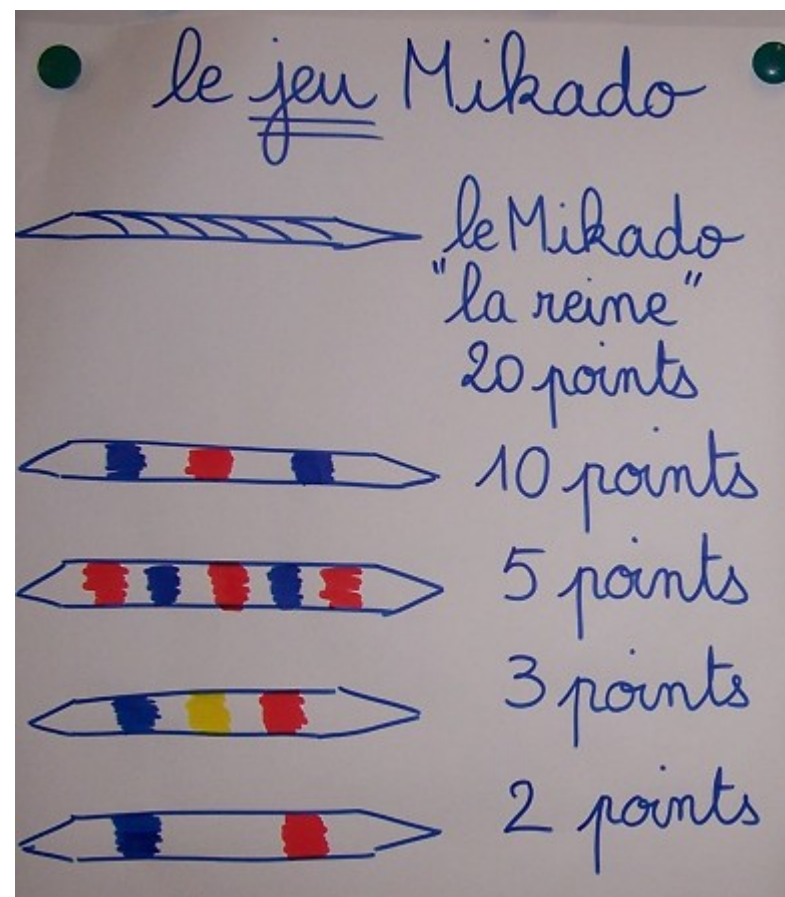 le jeu Mikado
le Mikado
"la reine"
20 points
10 points
5 points
3 points
2 points